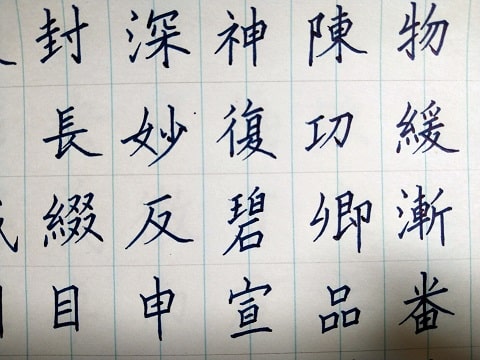 物緩漸番
陳功卿品
神復碧宣
深妙反申
封長綴目